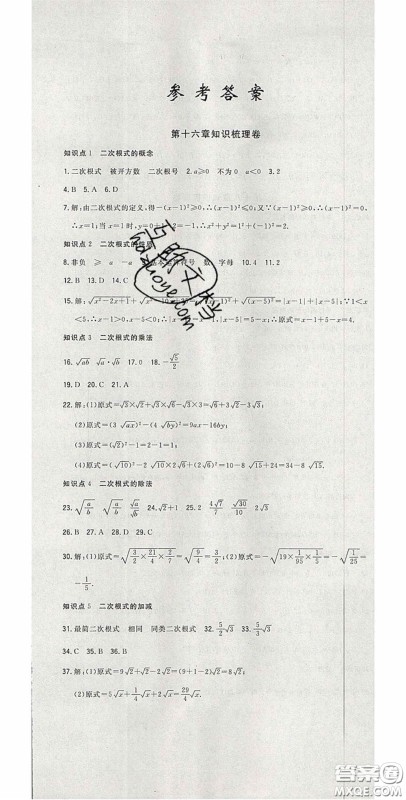 参考答案
第十六章知识梳理卷
知识点1 二次根式的概念
1.二次根式 被开方数 二次根号 2.a≥0 不为0 a<0 3.2
4.B 5.A 6.D
7.解:由二次根式的定义,得-(x-1)²≥0,∴(x-1)²≤0,∴(x-1)²=0,
∴x=1;当x=1时,y²=1,∴x²+y²=1²+1=2.
知识点2 二次根式的
8.非负 ≥ a -a 数 字母 10.4 11.2
12.B 13.D 14.C
<5,∴x-1>0,x-5<0;∴|x-1|+|x-5|=x-1+5-x=4.
知识点3 二次根式的乘法
16.√ab √a·√b 17.0 18.-√5/2
19.D 20.C 21.A
22.解:(1)原式=√5×√2+√3×√6=√10+3√2;
(2)原式=(3√ax)²-(4√by)²=9ax-16by;
(3)原式=(√2)²-1=2-1=1;
(4)原式=(√10)²-2×√10×√24+(√24)²=34-8√15.
知识点4 二次根式的除法
23.√(a/b) √a/√b 24.√2+1 25.2 4√7/7 √30/10
26.B 27.A 28.D 29.C
30.解:(1)原式=√(3/2×21/4×2/7)=√(9/4)=3/2;(2)原式=-√(19×1/95×1/5)=-√(1/25)=
-1/5.
知识点5 二次根式的加减
31.最简二次根式 相同 同类二次根式 32.5/2√3 33.√3
34.C 35.B 36.B
37.解:(1)原式=9√2+√2-2√2=(9+1-2)√2=8√2;
(2)原式=5√x+1/4√x+2√x=29/4√x.
互助文档
hazuoye.com
答案圈
MXQE.COM